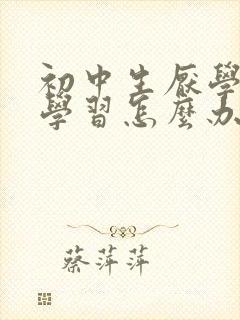 初中生厭學
學習怎麼办
蔡萍萍